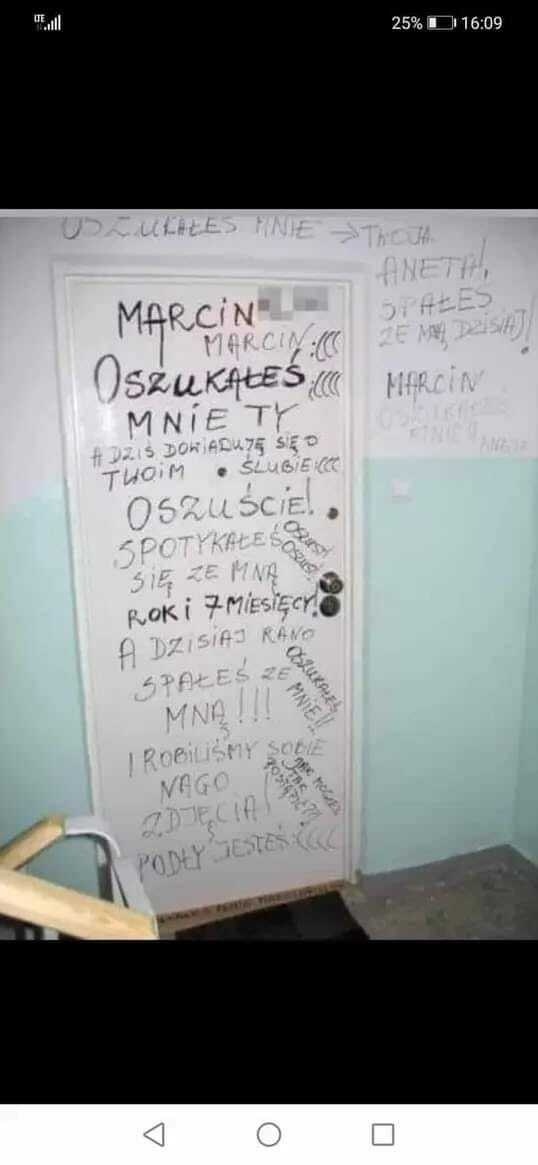 LTE
25% 16:09
OSZUKAŁEŚ MNIE → TWOJA
ANETA!
SPAŁEŚ
ZE MNĄ DZISIAJ!
MARCIN
OSZUKAŁEŚ
MNIE
MARCIN
MARCIN :(((
OSZUKAŁEŚ :((((
MNIE TY
A DZIŚ DOWIADUJĘ SIĘ O
TWOIM • ŚLUBIE :(((
OSZUŚCIE!
SPOTYKAŁEŚ
OSZUST!
OSZUST!
SIĘ ZE MNĄ
ROK i 7 MIESIĘCY!
A DZISIAJ RANO
SPAŁEŚ ZE
MNĄ!!!
OSZUKAŁEŚ
MNIE!!
I ROBILIŚMY SOBIE
NAGO
ZDJĘCIA!
JAK MOGŁEŚ
TAK
POSTĄPIĆ?!
PODŁY JESTEŚ :((((